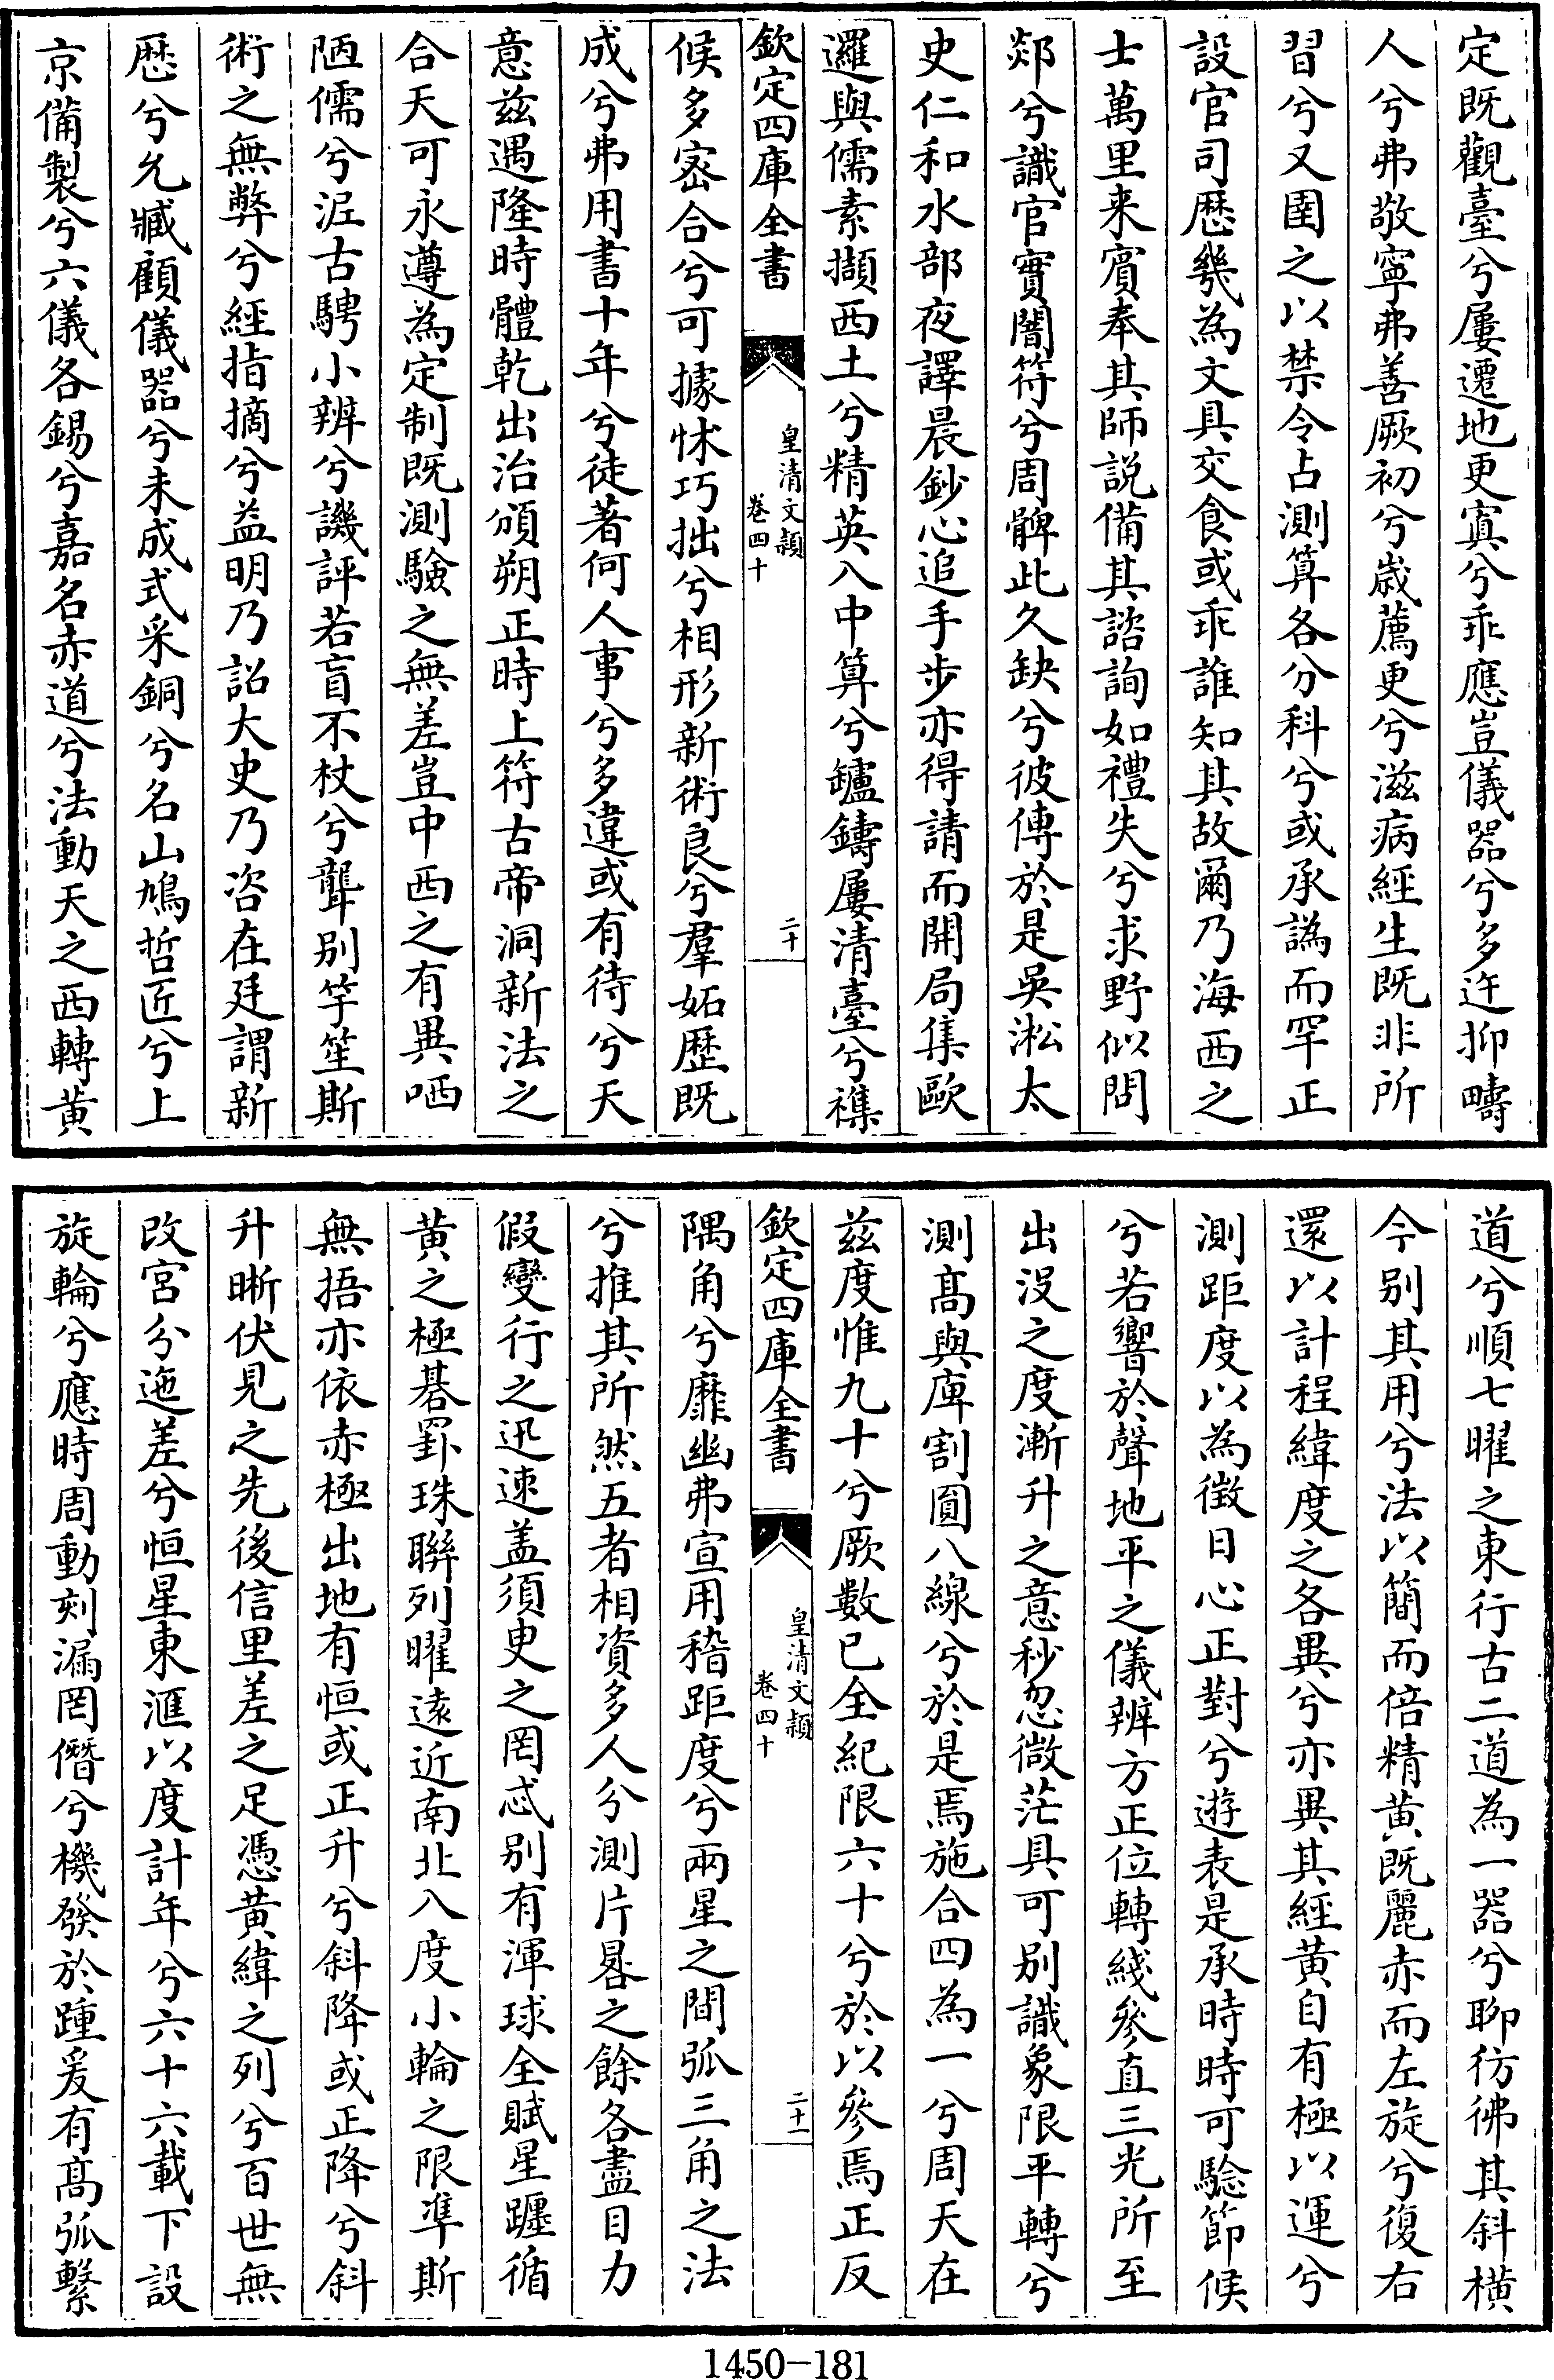 定既觀臺兮屢遷地更寘兮乖應豈儀器兮多迕抑疇
人兮弗敬寧弗善厥初兮嵗薦更兮滋病經生既非所
習兮又圉之以禁令占測算各分科兮或承譌而罕正
設官司厯幾為文具交食或乖誰知其故爾乃海西之
士萬里来賓奉其師説備其諮詢如禮失兮求野似問
郯兮識官實闇符兮周髀此久缺兮彼傳於是吳淞太
史仁和水部夜譯晨鈔心追手步亦得請而開局集歐
邏與儒素擷西土兮精英入中算兮鑪鑄屢清臺兮禨
欽定四庫全書
皇清文穎
卷四十
二十
候多宻合兮可據怵巧拙兮相形新術良兮羣妬歴既
成兮弗用書十年兮徒著何人事兮多違或有待兮天
意兹遇隆時體乾出治頒朔正時上符古帝洞新法之
合天可永遵為定制既測驗之無差豈中西之有異哂
陋儒兮泥古騁小辨兮譏評若盲不杖兮聾别竽笙斯
術之無弊兮經指摘兮益明乃詔大史乃咨在廷謂新
厯兮允臧顧儀器兮未成式采銅兮名山鳩哲匠兮上
京備製兮六儀各錫兮嘉名赤道兮法動天之西轉黄
道兮順七曜之東行古二道為一器兮聊彷彿其斜横
今别其用兮法以簡而倍精黄既麗赤而左旋兮復右
還以計程緯度之各異兮亦異其經黄自有極以運兮
測距度以為徴日心正對兮遊表是承時時可驗節候
兮若響於聲地平之儀辨方正位轉綫參直三光所至
出没之度漸升之意秒忽微茫具可别識象限平轉兮
測髙與庳割圓八線兮於是焉施合四為一兮周天在
兹度惟九十兮厥數已全紀限六十兮於以參焉正反
欽定四庫全書
皇清文穎
卷四十
二十一
隅角兮靡幽弗宣用稽距度兮兩星之間弧三角之法
兮推其所然五者相資多人分測片晷之餘各盡目力
假變行之迅速盖須臾之罔忒别有渾球全賦星躔循
黄之極碁罫珠聯列曜逺近南北入度小輪之限凖斯
無捂亦依赤極出地有恒或正升兮斜降或正降兮斜
升晰伏見之先後信里差之足憑黄緯之列兮百世無
改宫分迤差兮恒星東滙以度計年兮六十六載下設
旋輪兮應時周動刻漏罔僭兮機發於踵爰有髙弧繫
1450-181